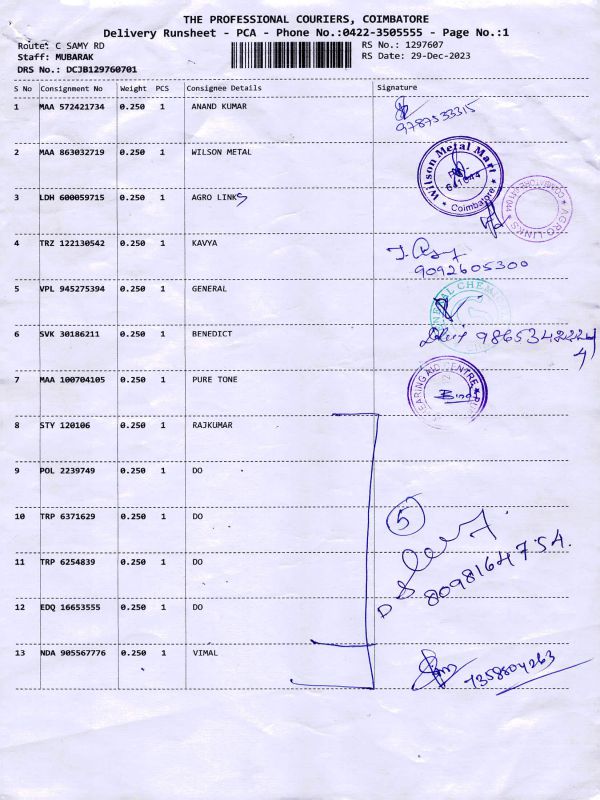 THE PROFESSIONAL COURIERS, COIMBATORE
Delivery Runsheet - PCA - Phone No.:0422-3505555 - Page No.:1
Route: C SAMY RD
RS No.: 1297607
Staff: MUBARAK
RS Date: 29-Dec-2023
DRS No.: DCJB129760701
S No Consignment No Weight PCS Consignee Details Signature
1 MAA 572421734 0.250 1 ANAND KUMAR
9787533315
2 MAA 863032719 0.250 1 WILSON METAL
Wilson Metal Mart
Coimbatore
3 LDH 600059715 0.250 1 AGRO LINKS
AGRO-LINKS
4 TRZ 122130542 0.250 1 KAVYA
9092605300
5 VPL 945275394 0.250 1 GENERAL
6 SVK 30186211 0.250 1 BENEDICT
7 MAA 100704105 0.250 1 PURE TONE
8 STY 120106 0.250 1 RAJKUMAR
9 POL 2239749 0.250 1 DO
10 TRP 6371629 0.250 1 DO
5
11 TRP 6254839 0.250 1 DO
8098164754.
12 EDQ 16653555 0.250 1 DO
13 NDA 905567776 0.250 1 VIMAL
7358804263